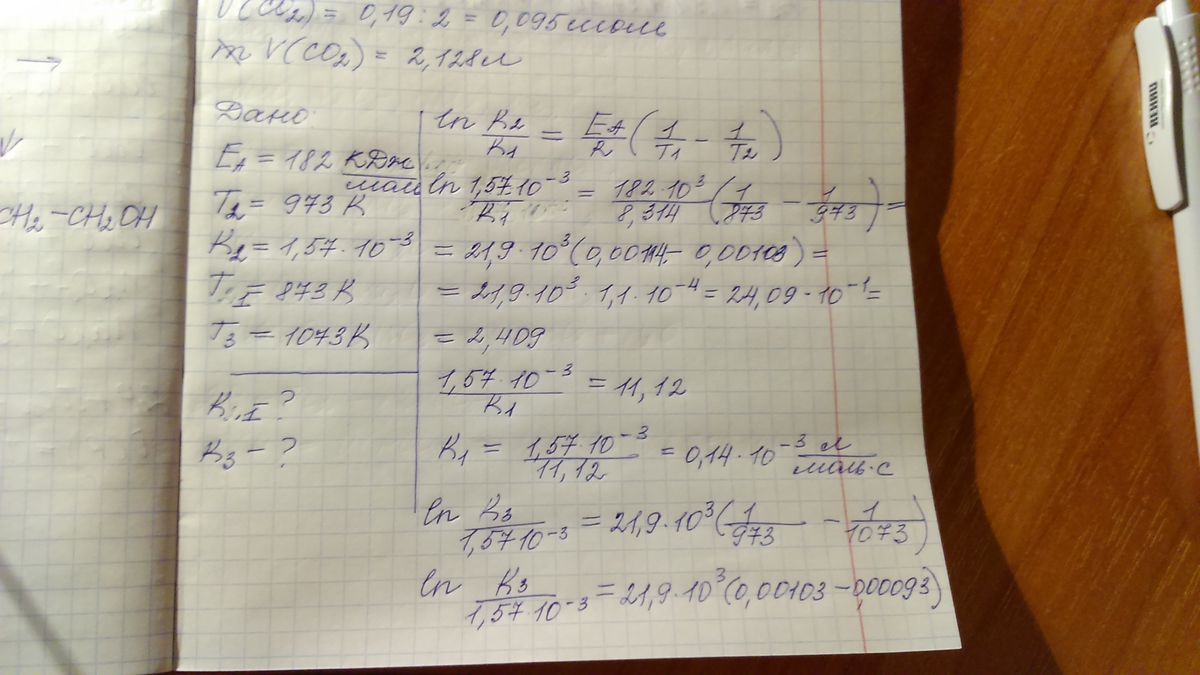 V(CO₂) = 0,19 : 2 = 0,095 моль
V(CO₂) = 2,128 л
Дано:
Eₐ = 182 кДж/моль
T₂ = 973 K
K₂ = 1,57 · 10⁻³
T₁ = 873 K
T₃ = 1073 K
K₁ - ?
K₃ - ?
ln K₂/K₁ = Eₐ/R (1/T₁ - 1/T₂)
ln 1,57·10⁻³/K₁ = 182·10³/8,314 (1/873 - 1/973) =
= 21,9·10³ (0,00114 - 0,00103) =
= 21,9·10³ · 1,1·10⁻⁴ = 24,09·10⁻¹ =
= 2,409
1,57·10⁻³/K₁ = 11,12
K₁ = 1,57·10⁻³/11,12 = 0,14·10⁻³ л/моль·с
ln K₃/1,57·10⁻³ = 21,9·10³ (1/973 - 1/1073)
ln K₃/1,57·10⁻³ = 21,9·10³ (0,00103 - 0,00093)
CH₂-CH₂OH